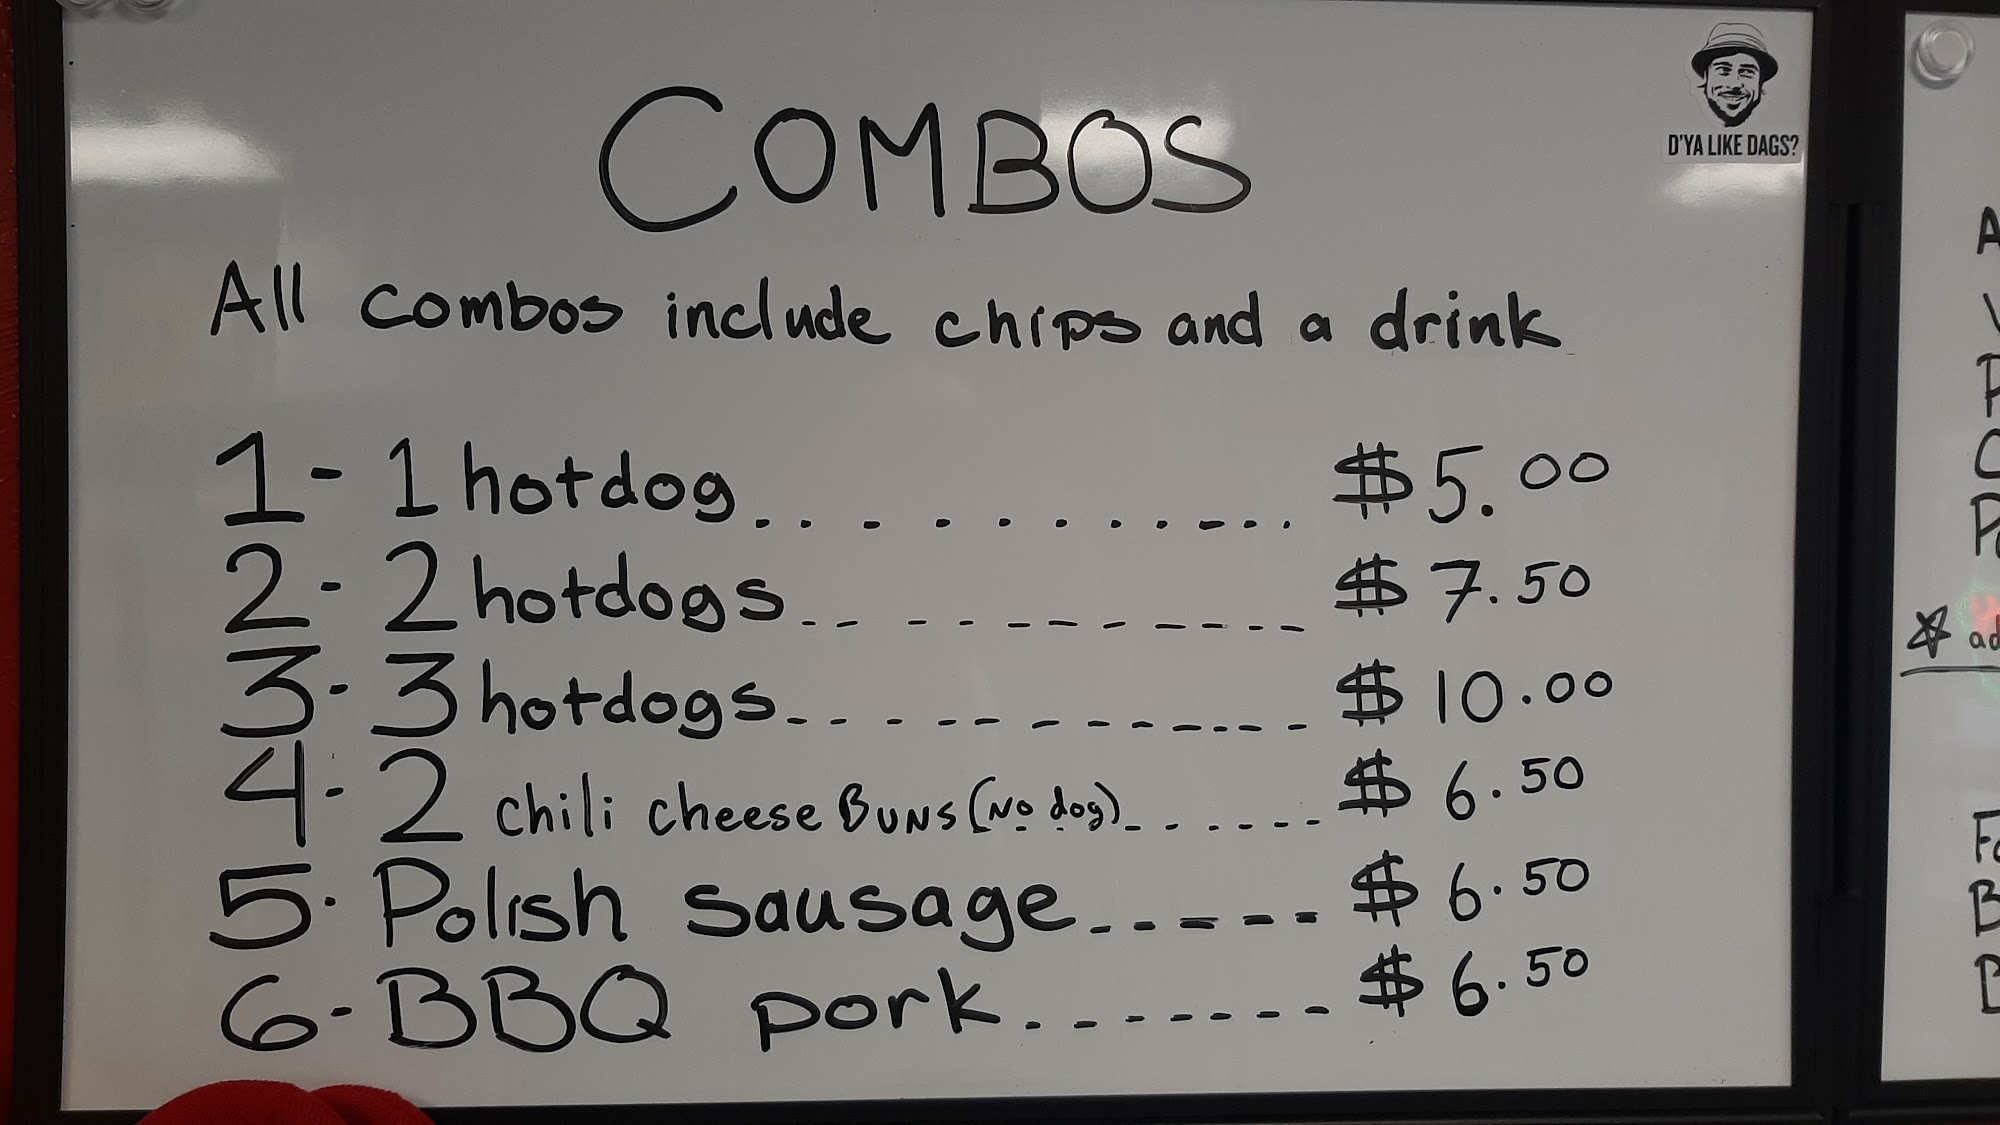 COMBOS
D'YA LIKE DAGS?
All combos include chips and a drink
1- 1 hotdog............ $5.00
2- 2 hotdogs............ $7.50
3- 3 hotdogs............ $10.00
4- 2 chili cheese BUNS (No dog)....... $6.50
5. Polish sausage...... $6.50
6- BBQ pork........ $6.50
ad